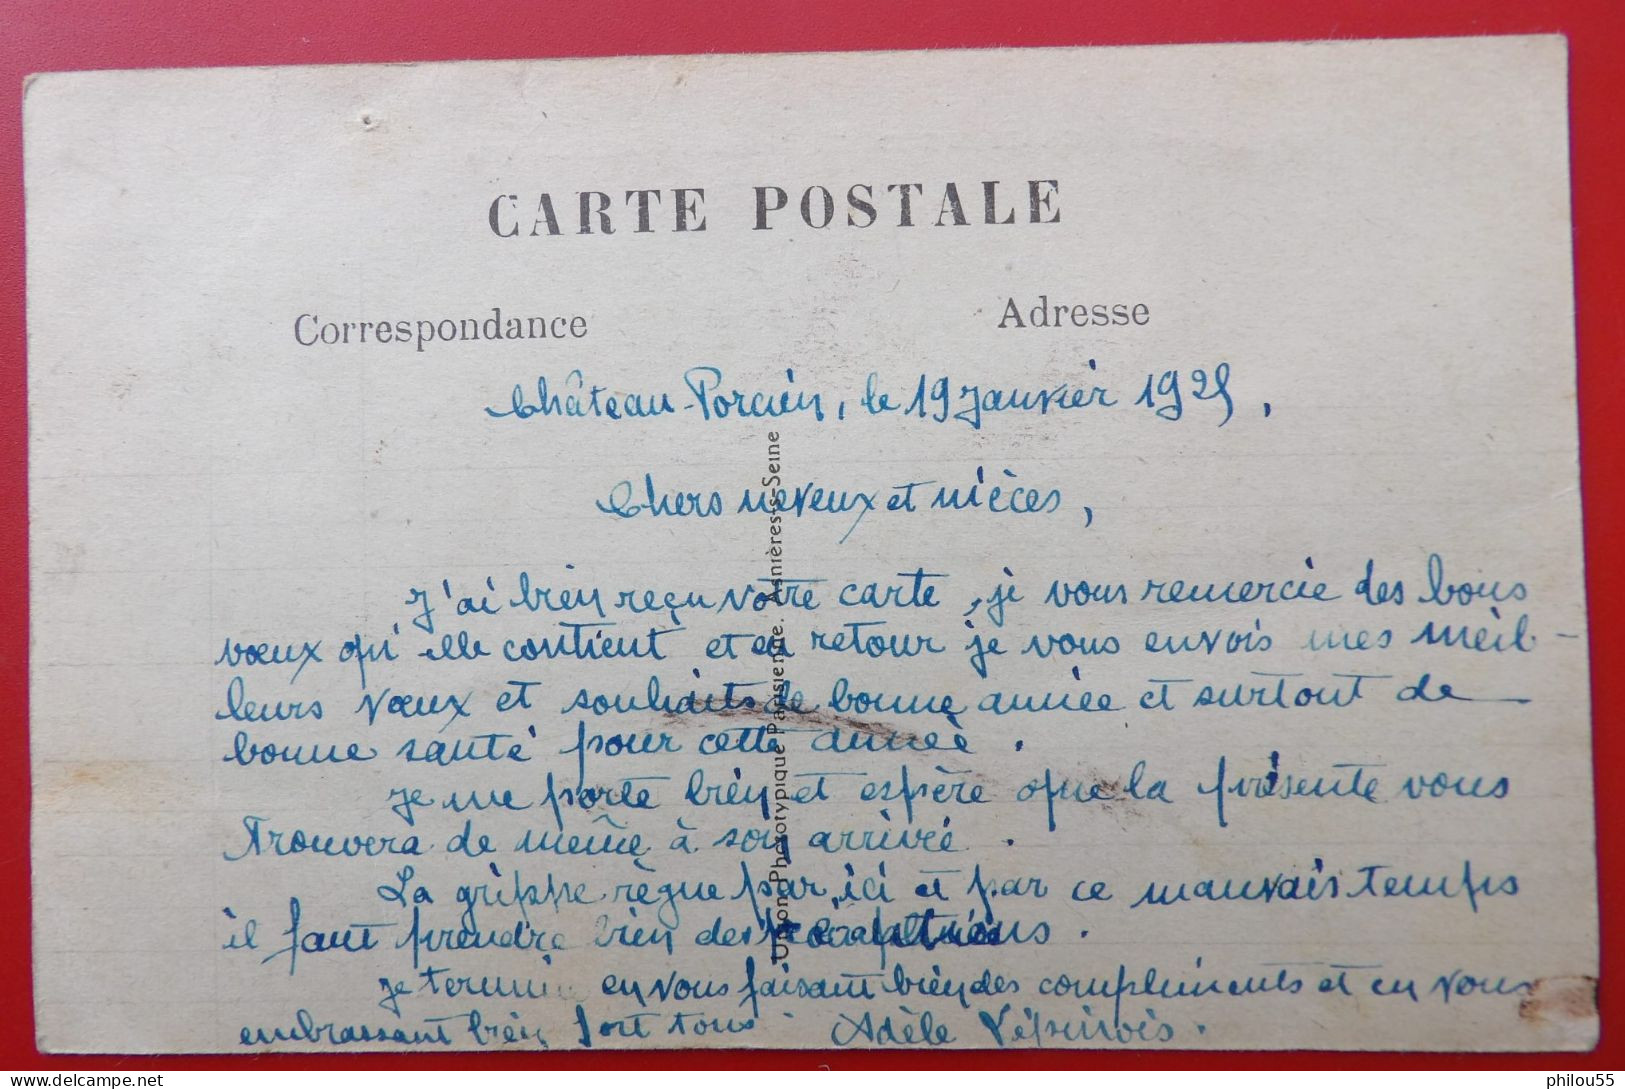 CARTE POSTALE
Correspondance
Adresse
Château-Porcien, le 19 Janvier 1925,
Chers neveux et nièces,
J'ai bien reçu votre carte, je vous remercie des bons
vœux qu'elle contient et en retour je vous envois mes meil-
leurs vœux et souhaits de bonne année et surtout de
bonne santé pour cette année.
Je me porte bien et espère que la présente vous
trouvera de même à son arrivée.
La grippe règne par ici et par ce mauvais temps
il faut prendre bien des
je termine en vous faisant bien des compliments et en vous
embrassant bien fort tous. Adèle
Union Phototypique Parisienne. Asnières-s-Seine
delcampe.net
philou55